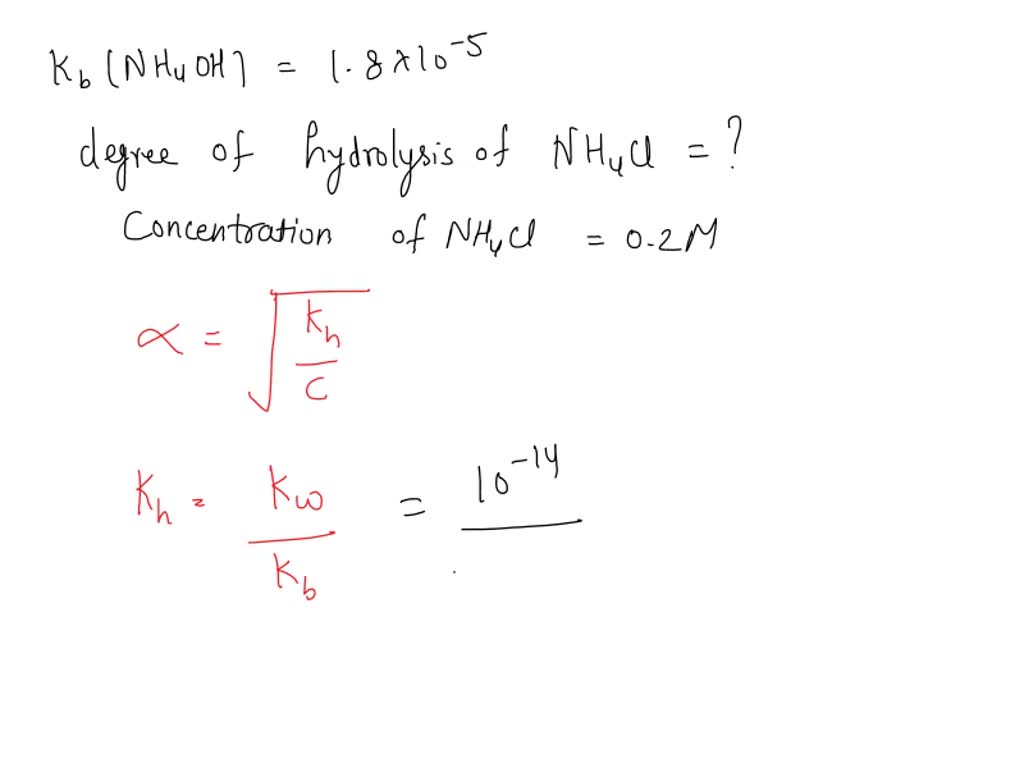 Kb (NH4OH) = 1.8×10^-5
degree of hydrolysis of NH4Cl = ?
Concentration of NH4Cl = 0.2M
α = √(Kh/C)
Kh = Kw/Kb = 10^-14/